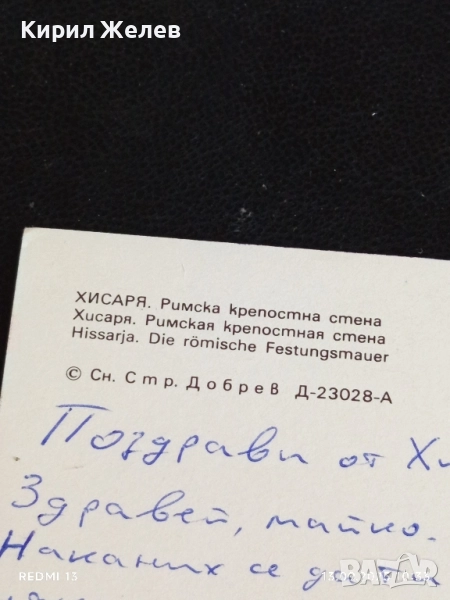 Кирил Желев
ХИСАРЯ. Римска крепостна стена
Хисаря. Римская крепостная стена
Hissarja. Die römische Festungsmauer
© Сн. Стр. Добрев Д-23028-А
Поздрави от Хи
Здравей, майко.
Наканих се да ти
REDMI 13
BAZAR